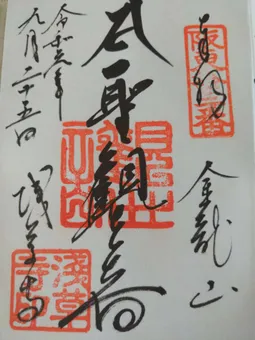 坂東十三番
奉拝
金龍山
大聖観世音
令和六年
九月二十五日
浅草寺